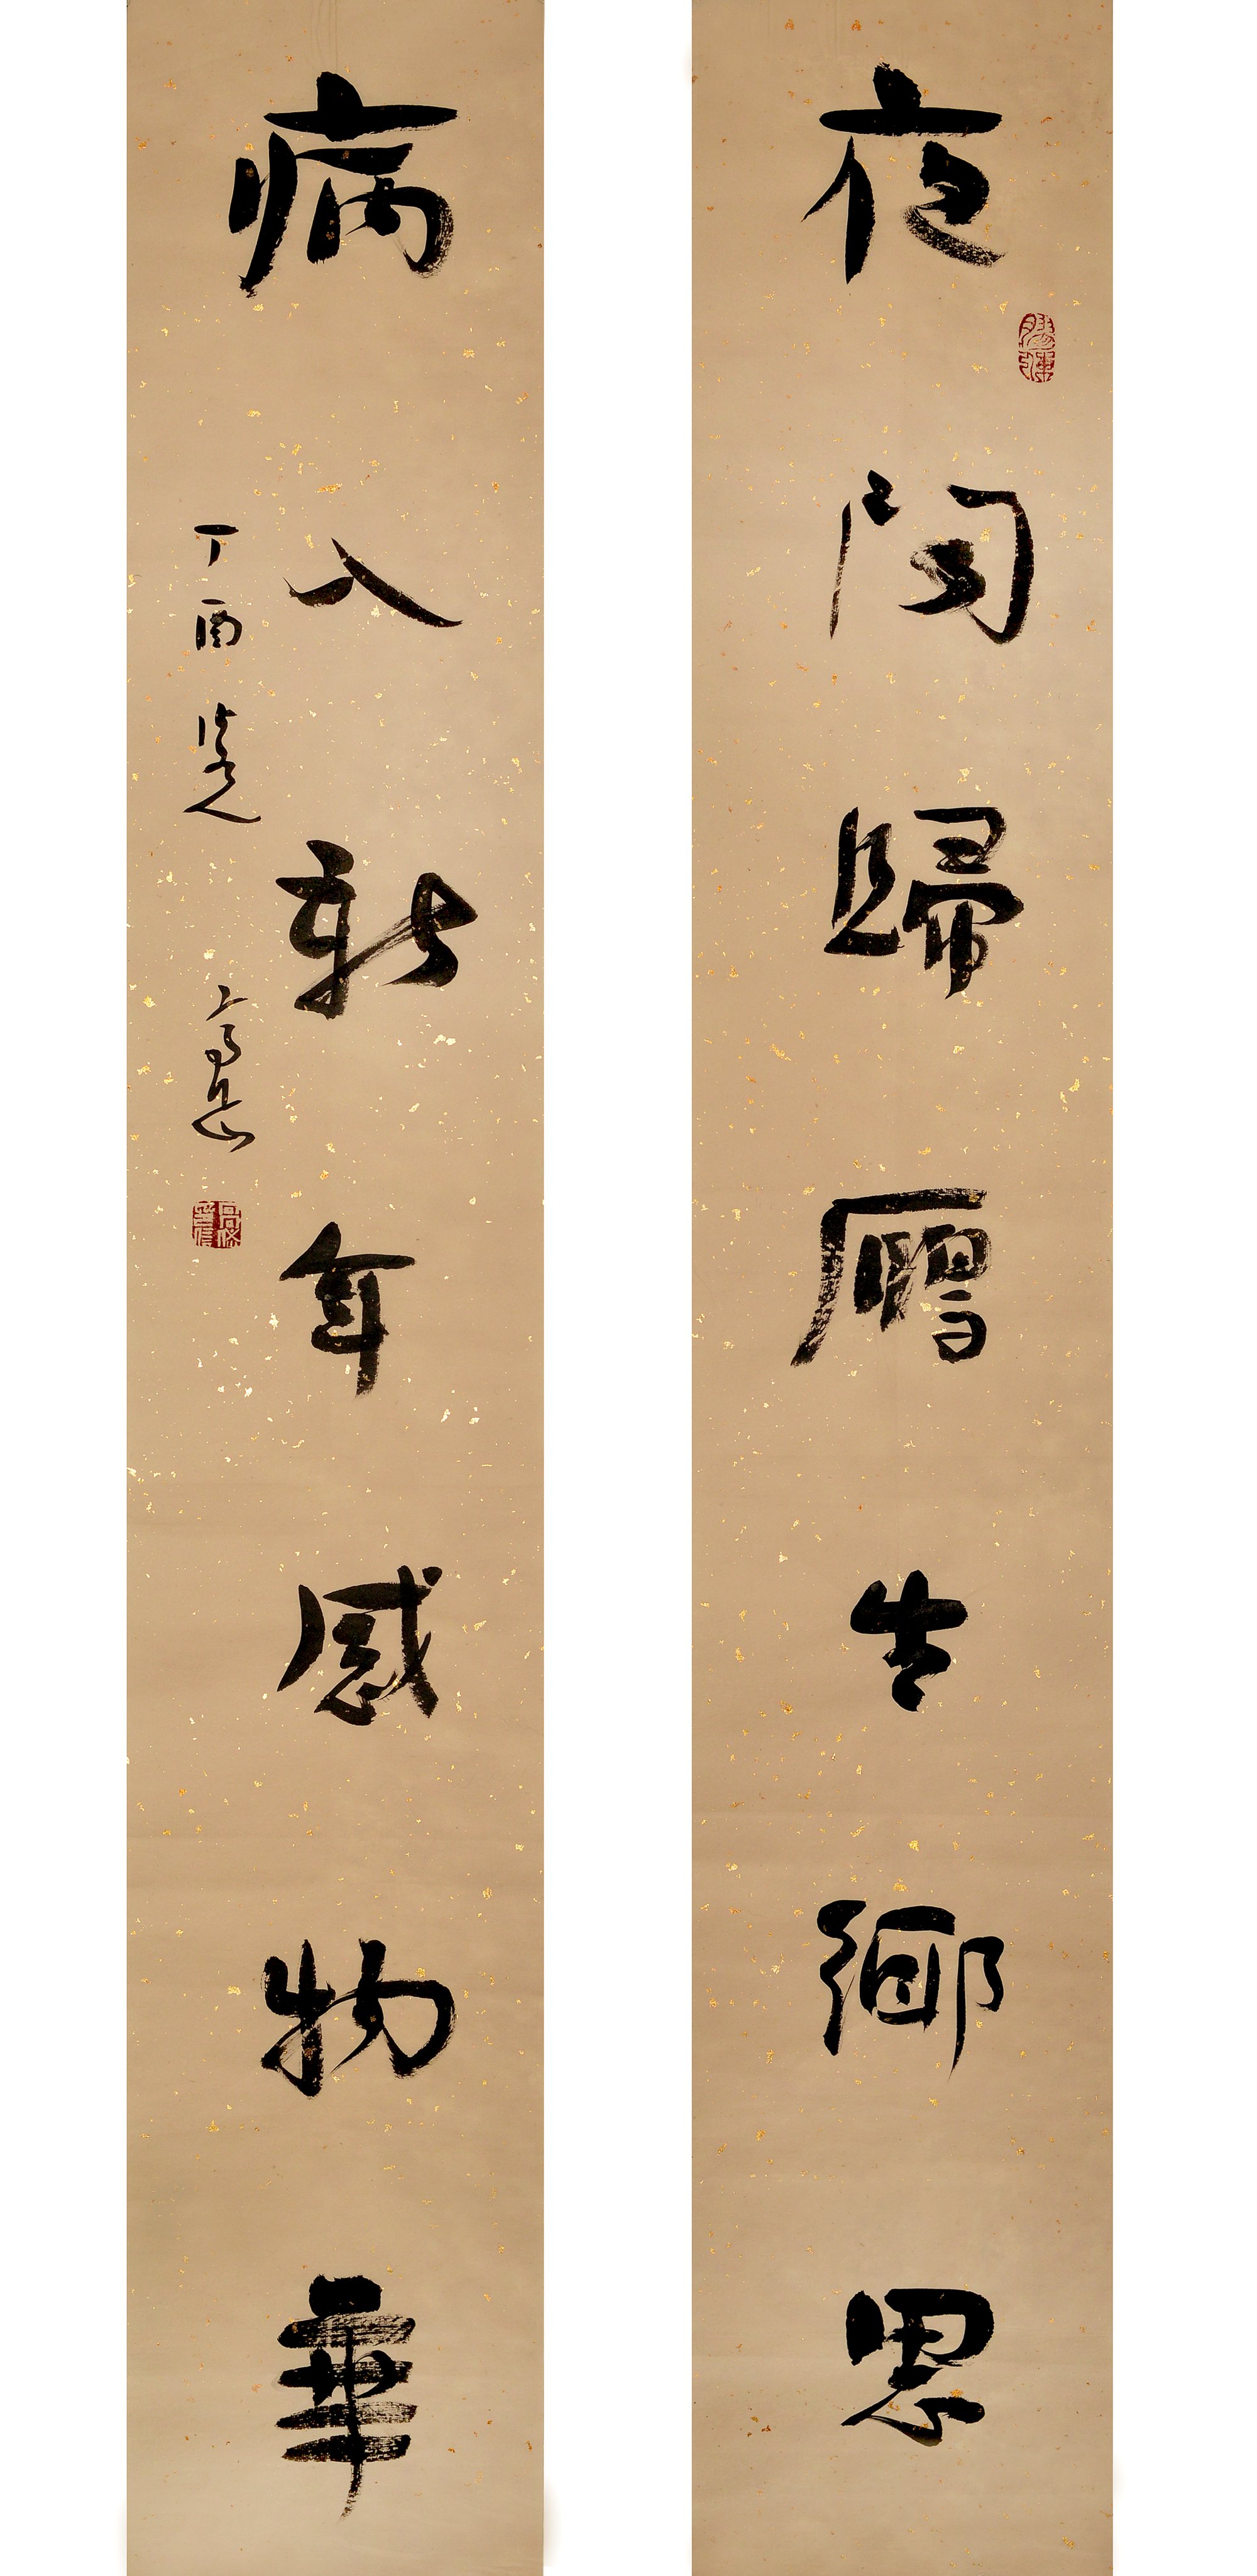 夜闻歸鴈生鄉思
病入新年感物華
丁酉